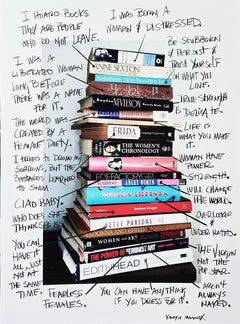 I HOARD BOOKS
THEY ARE PEOPLE
WHO DO NOT LEAVE.
I WAS BORN A
WOMAN & DISTRESSED.
I WAS A
LIBERATED WOMAN
LONG BEFORE
THERE WAS A NAME
FOR IT.
THE WORLD WAS
CREATED BY A
FEMALE DEITY.
I TRIED TO DROWN MY
SORROWS, BUT THE
BASTARDS LEARNED
TO SWIM
GLAD BABY.
WHO DOES SHE
THINK SHE
YOU CAN
HAVE IT
ALL JUST
NOT AT
THE SAME
TIME.
FEARLESS
FEMALES.
YOU CAN HAVE ANYTHING
IF YOU DRESS FOR IT.
BE STUBBORN
& PERSIST &
TRUST YOURSELF
ON WHAT YOU
LOVE.
TRUE STRENGTH
IS DELICATE.
LIFE IS
WHAT YOU MAKE
IT.
WOMAN HAVE
POWER.
WILL CHANGE
THE WORLD.
OVERLOOKED
& UNDER RATED.
THE VIRGIN
NOT THE
POP STAR.
AREN'T
ALWAYS
NAKED.
ANNE SEXTON
NEVELSON
FRIDA
THE WOMEN'S
CHRONOLOGY
EDIE FACTORY GIRL
BETTY PARSONS
WOMEN AND ART
THE POWER OF FEMINIST ART
EDITH HEAD